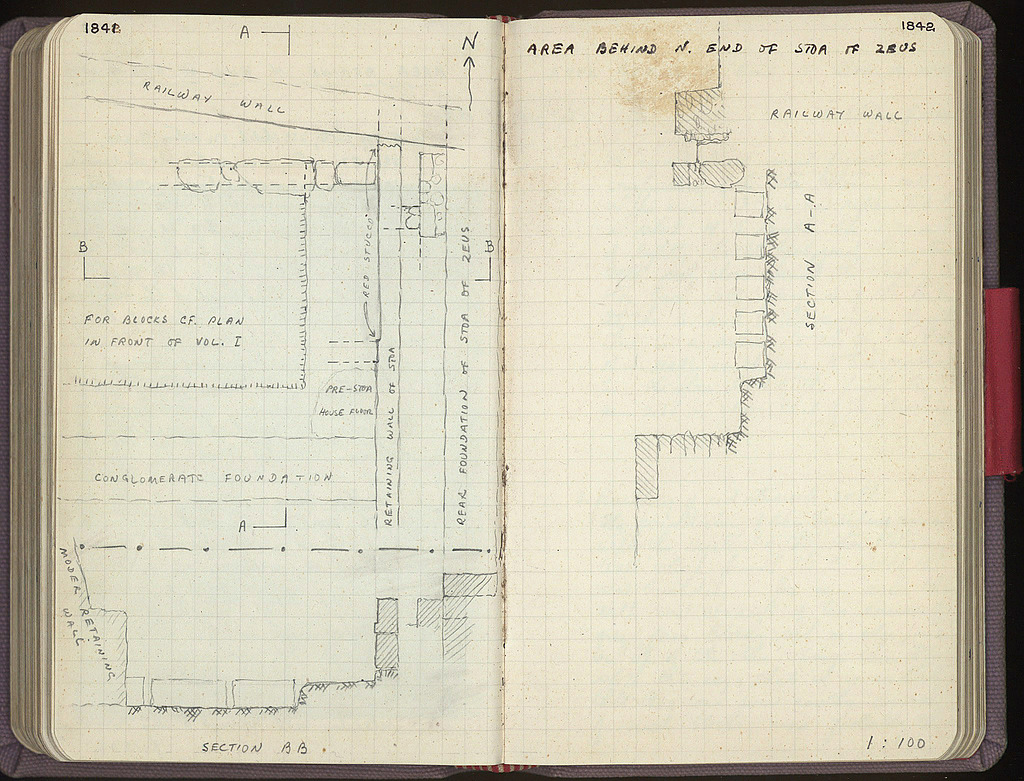 1841
A
N
RAILWAY WALL
RED STUCCO
B
B
FOR BLOCKS CF. PLAN
IN FRONT OF VOL. I
PRE-STOA
HOUSE FLOOR
RETAINING WALL OF STOA
REAR FOUNDATION OF STOA OF ZEUS
CONGLOMERATE FOUNDATION
A
MODERN RETAINING
WALL
SECTION BB
1842
AREA BEHIND N. END OF STOA OF ZEUS
RAILWAY WALL
SECTION A-A
1:100